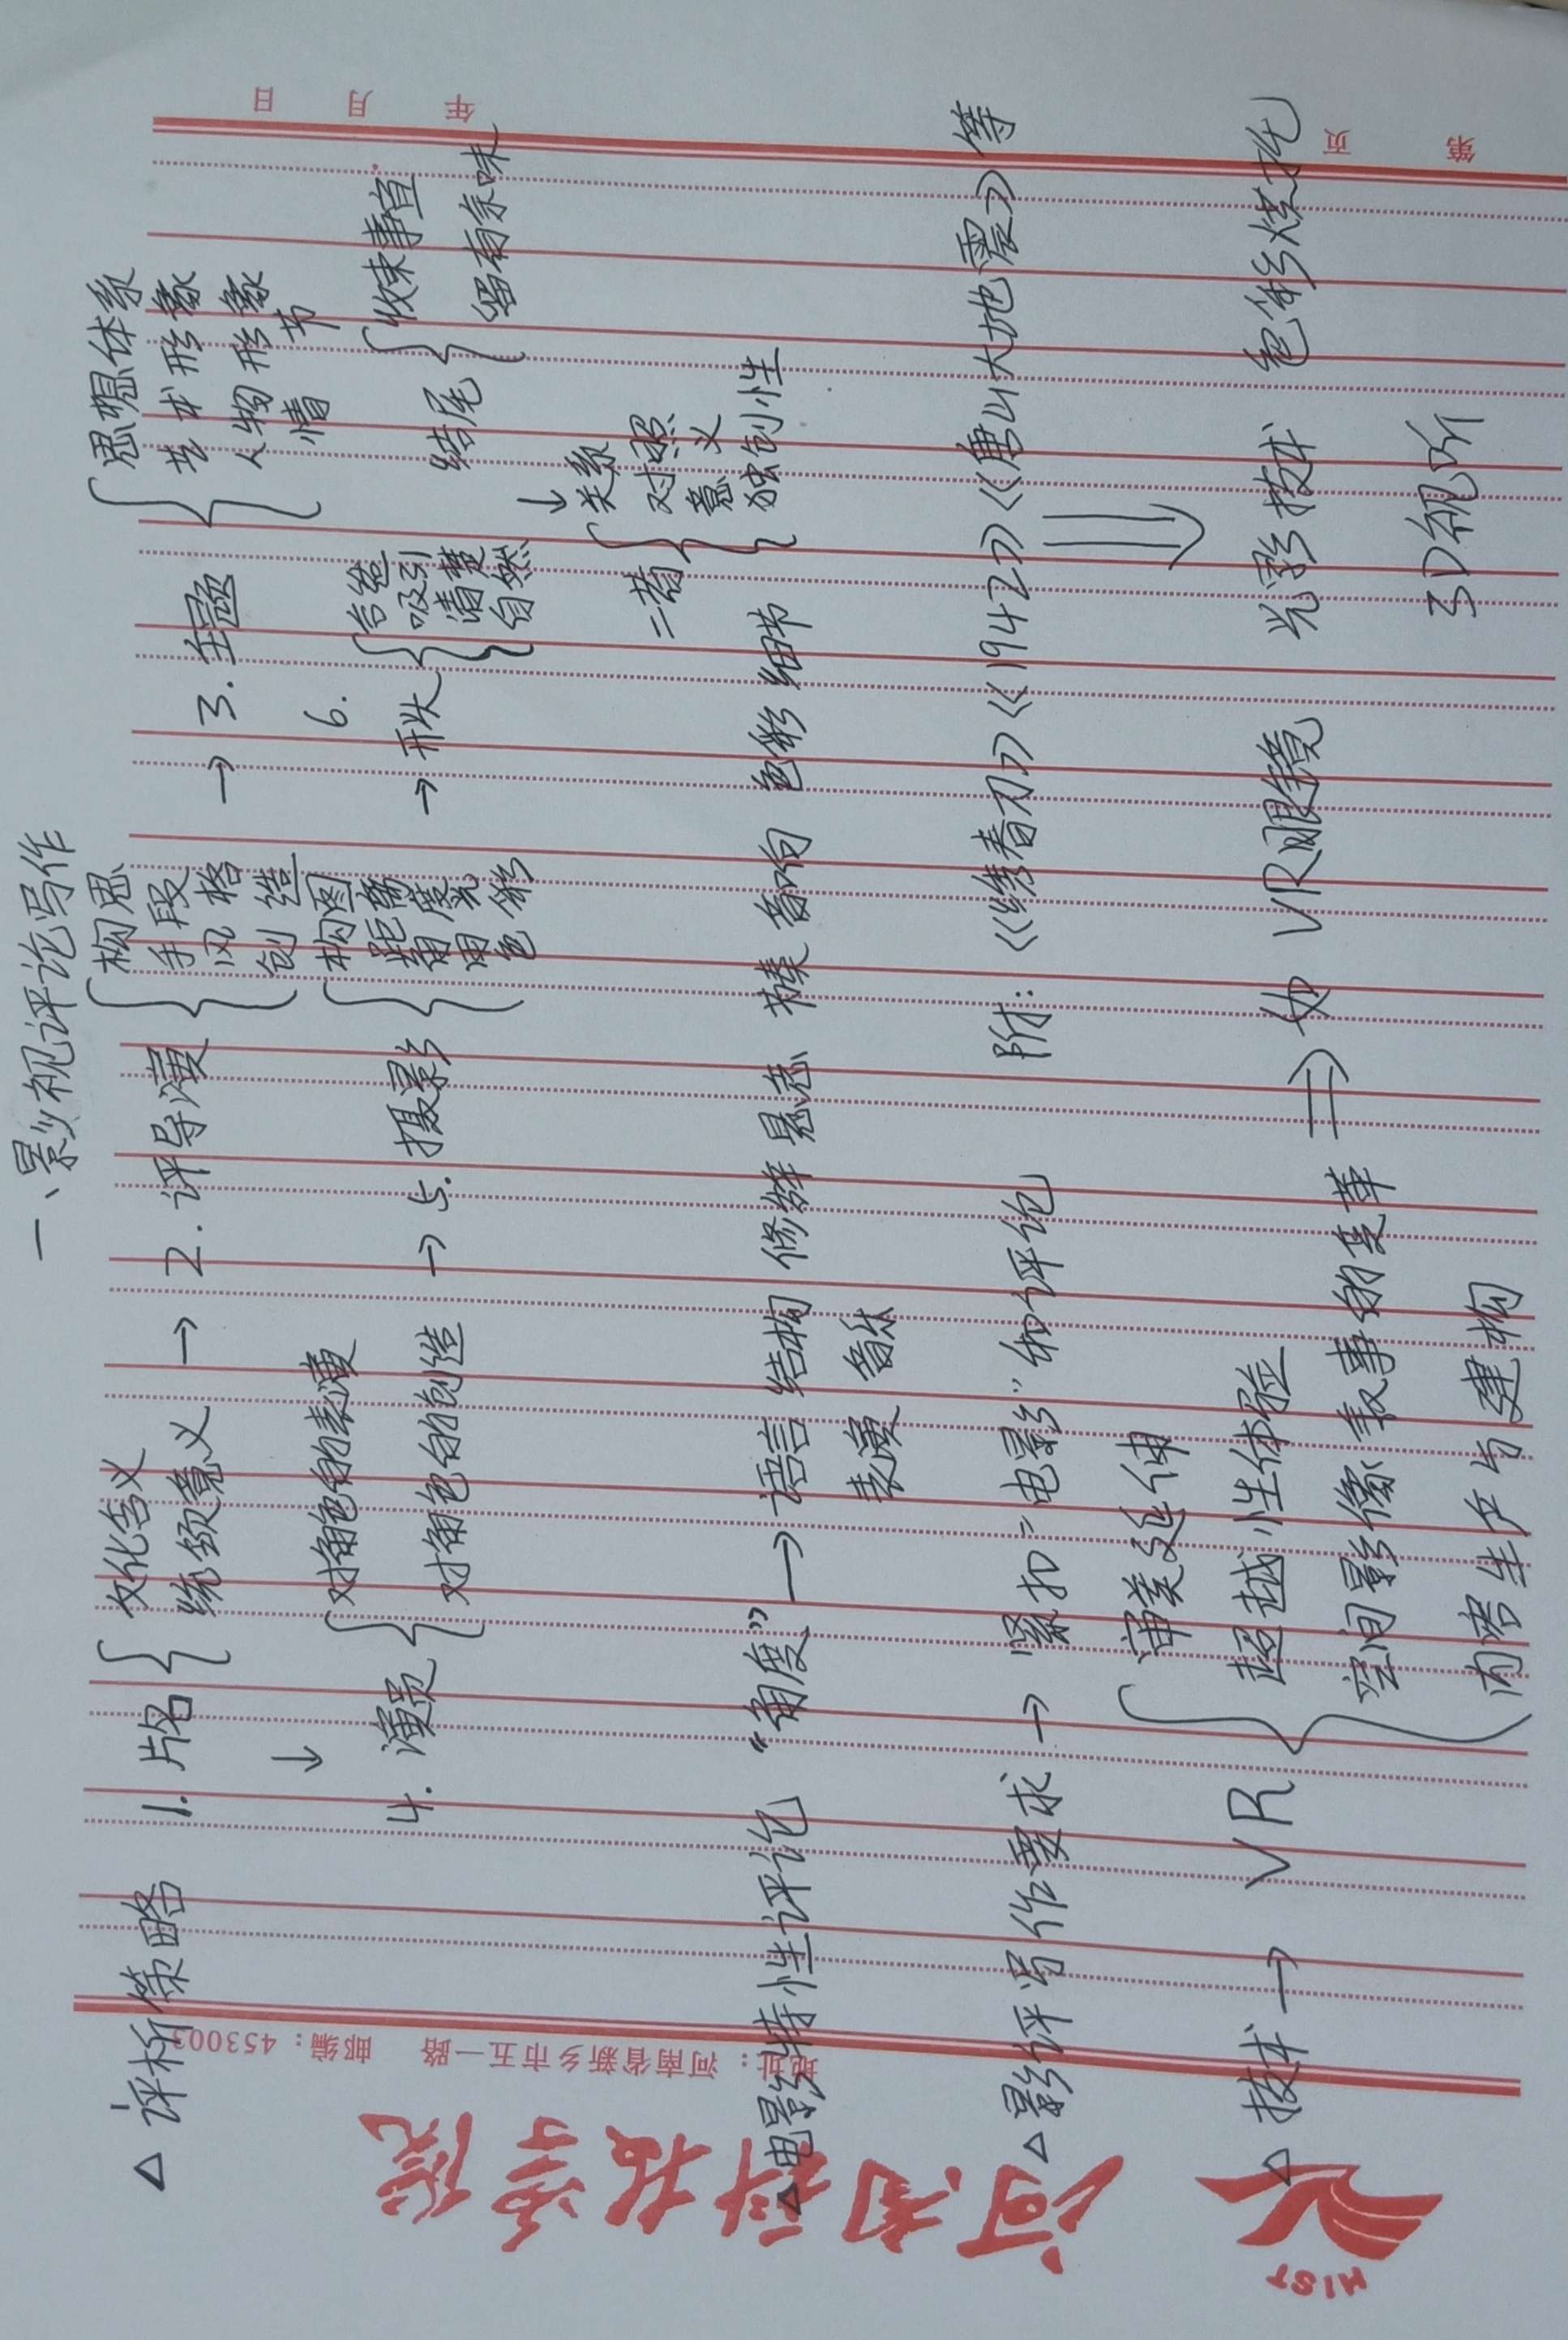 一、影视评论写作
△ 评析策略 1. 片名 { 文化含义 → 2. 评导演 { 构思 → 3. 主题 { 思想体系
统领意义 手段 艺术形象
风格 人物形象
创造 情节
↓
4. 演员 { 对角色的表演 → 5. 摄影 { 构图 → 6. 开头 { 吸引 结尾 { 收束事宜
对角色的创造 角度 清楚 留有余味
色彩 自然
↓
二者 { 关系
对照
意义
独创性
△ 电影特性评论 “角度” → 语言 结构 修辞 悬念 节奏 音响 色彩 细节
表演 音乐
△ 影评写作要求 → 紧扣“电影”和评论 附:《绣春刀》《1942》《唐山大地震》等
△ 技术 → VR { 审美延伸
超越性体验
空间影像叙事的变革
内容生产与建构
⇒ 如 VR眼镜 光影技术 色彩烘托
3D视听
河南科技学院
HIST
地址:河南省新乡市五一路 邮编:453003
年 月 日
第 页